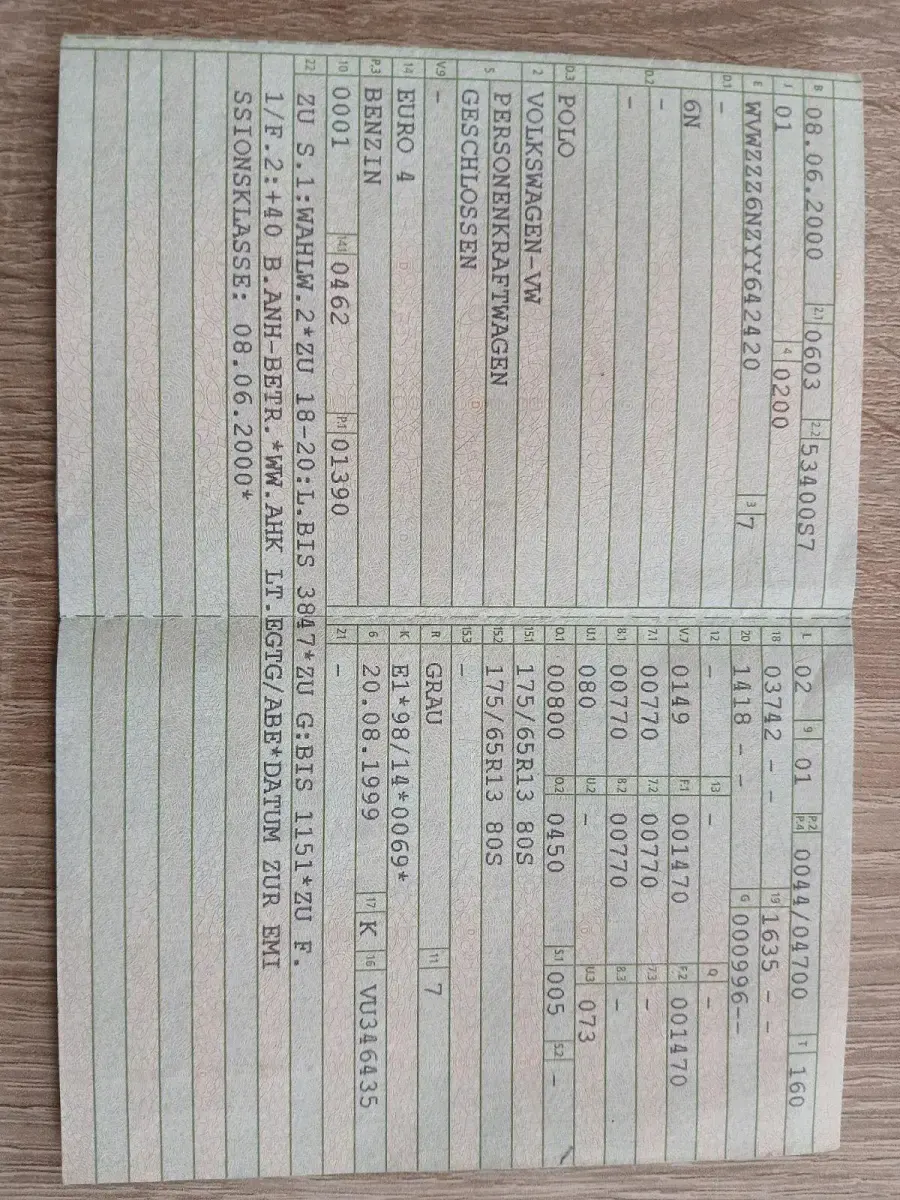 B 08.06.2000 2.1 0603 2.2 53400S7
J 01 4 0200
E WVWZZZ6NZYY642420 3 7
D.1 -
6N
D.2 -
-
D.3 POLO
2 VOLKSWAGEN-VW
5 PERSONENKRAFTWAGEN
GESCHLOSSEN
V.9 -
14 EURO 4
P.3 BENZIN
10 0001 14.1 0462 P.1 01390
L 02 9 01 P.2 P.4 0044/04700 T 160
18 03742 - - 19 1635 - -
20 1418 - - G 000996--
12 - 13 - Q -
V.7 0149 F.1 001470 F.2 001470
7.1 00770 7.2 00770 7.3 -
8.1 00770 8.2 00770 8.3 -
U.1 080 U.2 - U.3 073
O.1 00800 O.2 0450 S.1 005 S.2 -
15.1 175/65R13 80S
15.2 175/65R13 80S
15.3 -
R GRAU 11 7
K E1*98/14*0069*
6 20.08.1999 17 K 16 VU346435
21 -
22 ZU S.1:WAHLW.2*ZU 18-20:L.BIS 3847*ZU G:BIS 1151*ZU F.
1/F.2:+40 B.ANH-BETR.*WW.AHK LT.EGTG/ABE*DATUM ZUR EMI
SSIONSKLASSE: 08.06.2000*